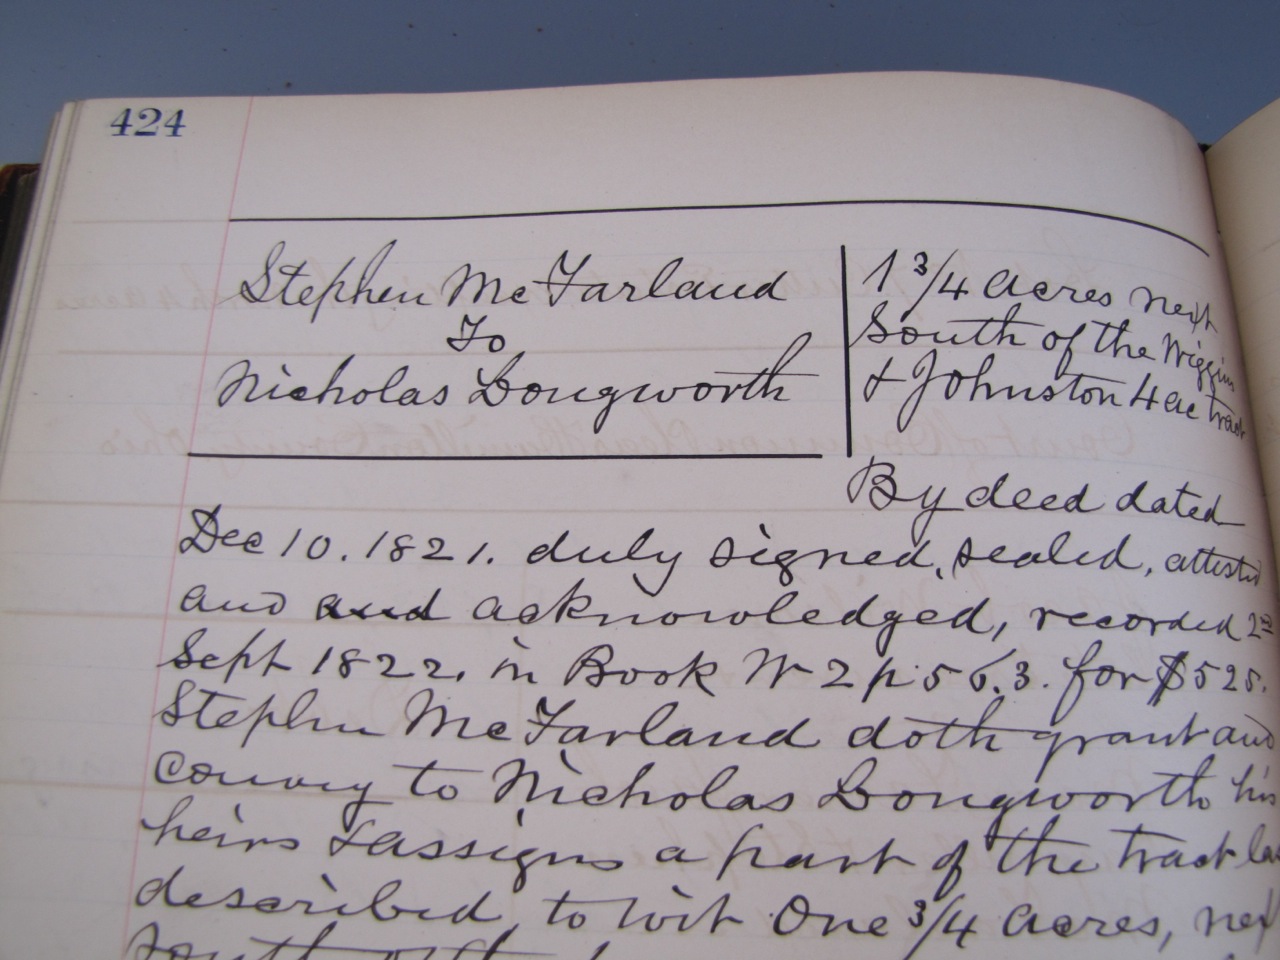 424
Stephen McFarland
To
Nicholas Longworth
1 3/4 acres next
South of the Wiggins
& Johnston 4 ac tract
By deed dated
Dec 10. 1821. duly signed, sealed, attested
and and acknowledged, recorded 2nd
Sept 1822. in Book W 2 p. 563. for $525.
Stephen McFarland doth grant and
convey to Nicholas Longworth his
heirs & assigns a part of the tract
described, to wit One 3/4 acres, next
South of the